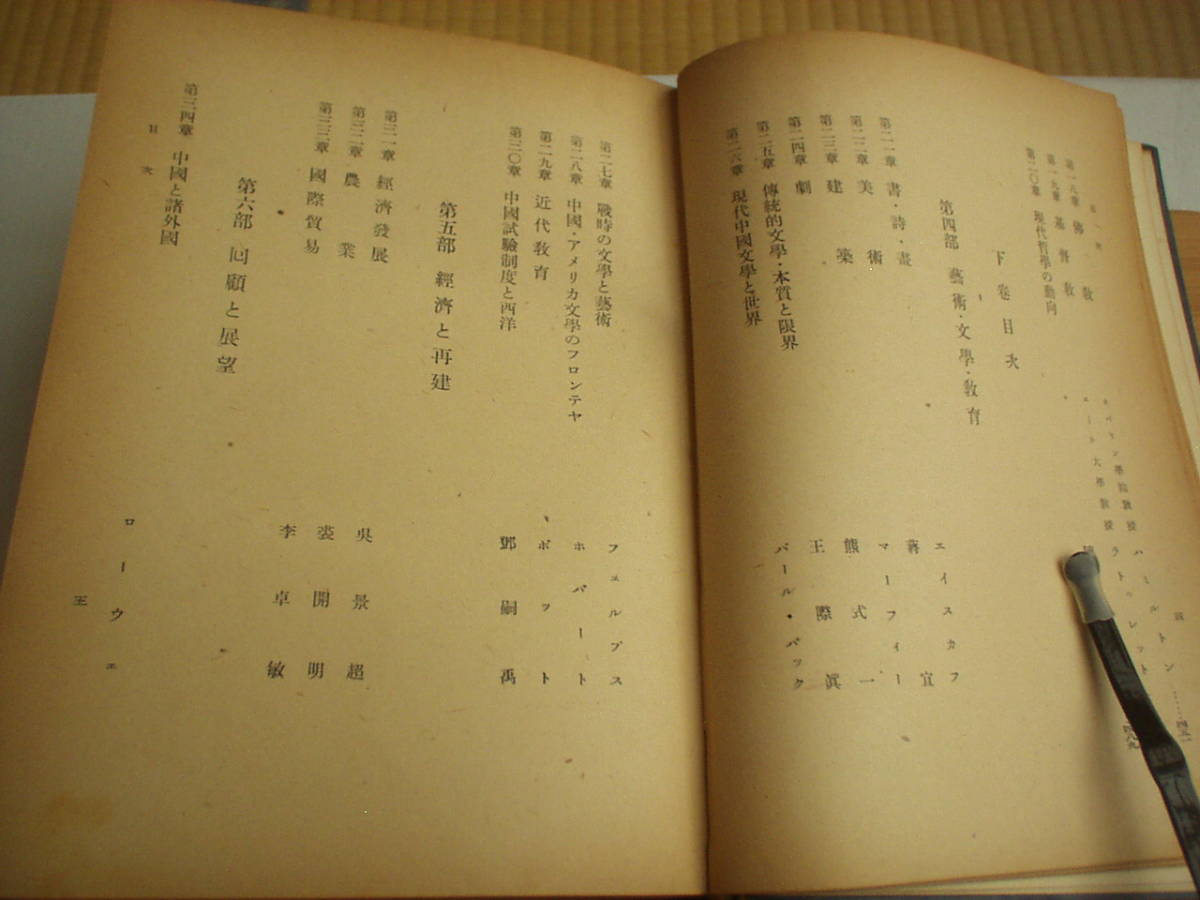 第一八章 佛教 オバリン學院教授 ハミルトン……四五一
第一九章 基督教 エール大學教授 ラトゥレット 四八九
第二〇章 現代哲學の動向
下卷目次
第四部 藝術・文學・教育
第二一章 書・詩・畫 蔣宜
第二二章 美術 エイスカフ
第二三章 建築 マーフィー
第二四章 劇 熊式一
第二五章 傳統的文學・本質と限界 王際眞
第二六章 現代中國文學と世界 パール・バック
第二七章 戰時の文學と藝術 フェルプス
第二八章 中國・アメリカ文學のフロンテヤ ホバート
第二九章 近代教育 ボット
第三〇章 中國試驗制度と西洋 鄧嗣禹
第五部 經濟と再建
第三一章 經濟發展 吳景超
第三二章 農業 裘開明
第三三章 國際貿易 李卓敏
第六部 回顧と展望
第三四章 中國と諸外國 ローウェ
目次
王